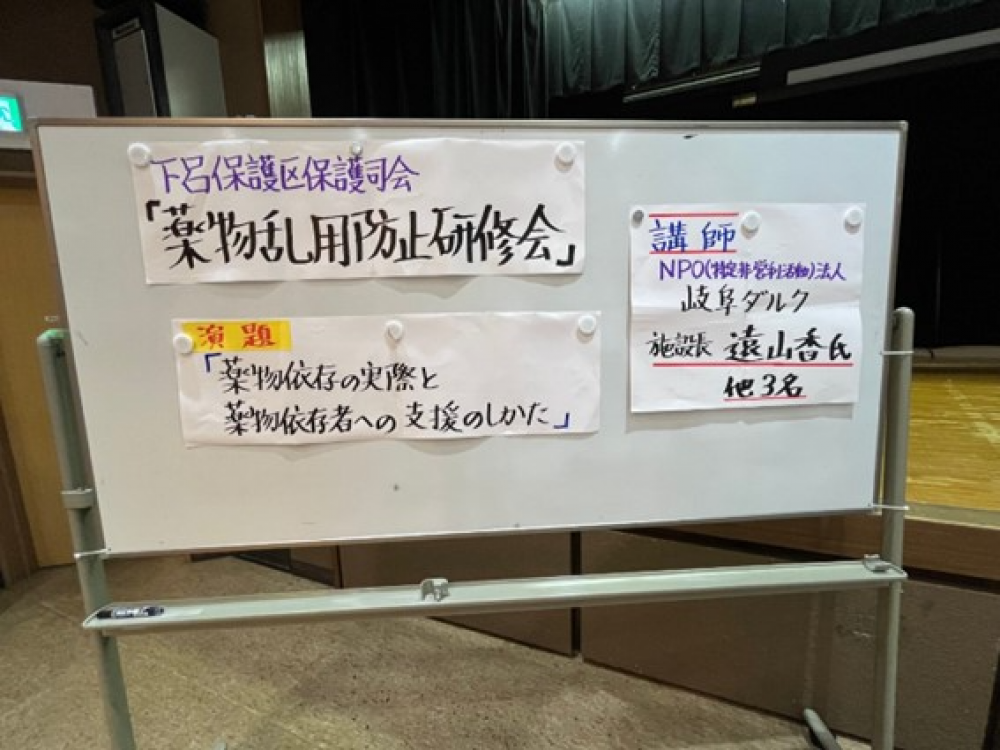 下呂保護区保護司会
「薬物乱用防止研修会」
演題
「薬物依存の実際と
薬物依存者への支援のしかた」
講師
NPO(特定非営利活動)法人
岐阜ダルク
施設長 遠山香氏
他3名